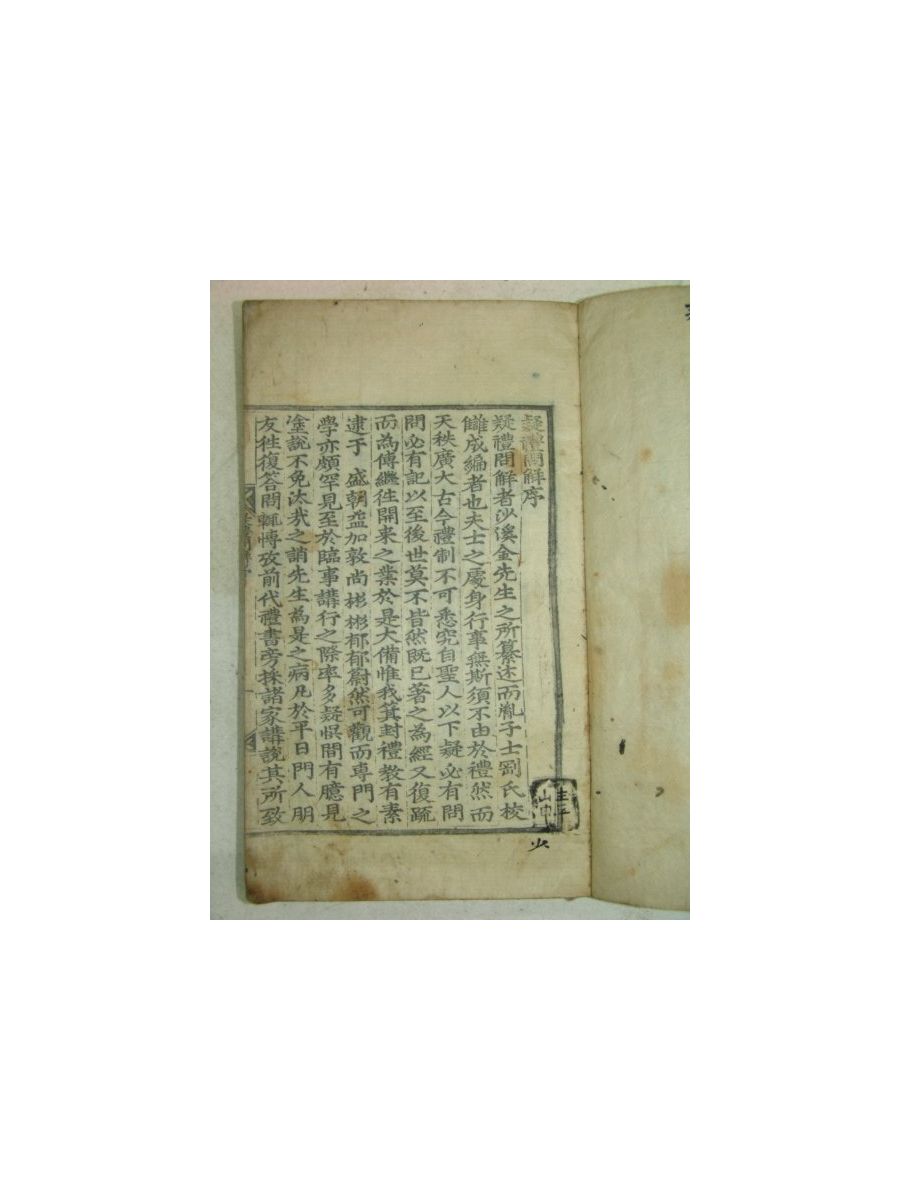 疑禮問解序
疑禮問解者沙溪金先生之所纂述而胤子士剛氏校
讎成編者也夫士之處身行事無斯須不由於禮然而
天秩廣大古今禮制不可悉究自聖人以下疑必有問
問必有記以至後世莫不皆然既已著之為經又復疏
而為傳繼往開來之業於是大備惟我箕封禮教有素
逮于 盛朝益加敦尚彬彬郁郁蔚然可觀而專門之
學亦頗罕見至於臨事講行之際率多疑惧間有臆見
塗說不免汰哉之誚先生為是之病凡於平日門人朋
友往復答問輒博攷前代禮書旁採諸家講說其所致